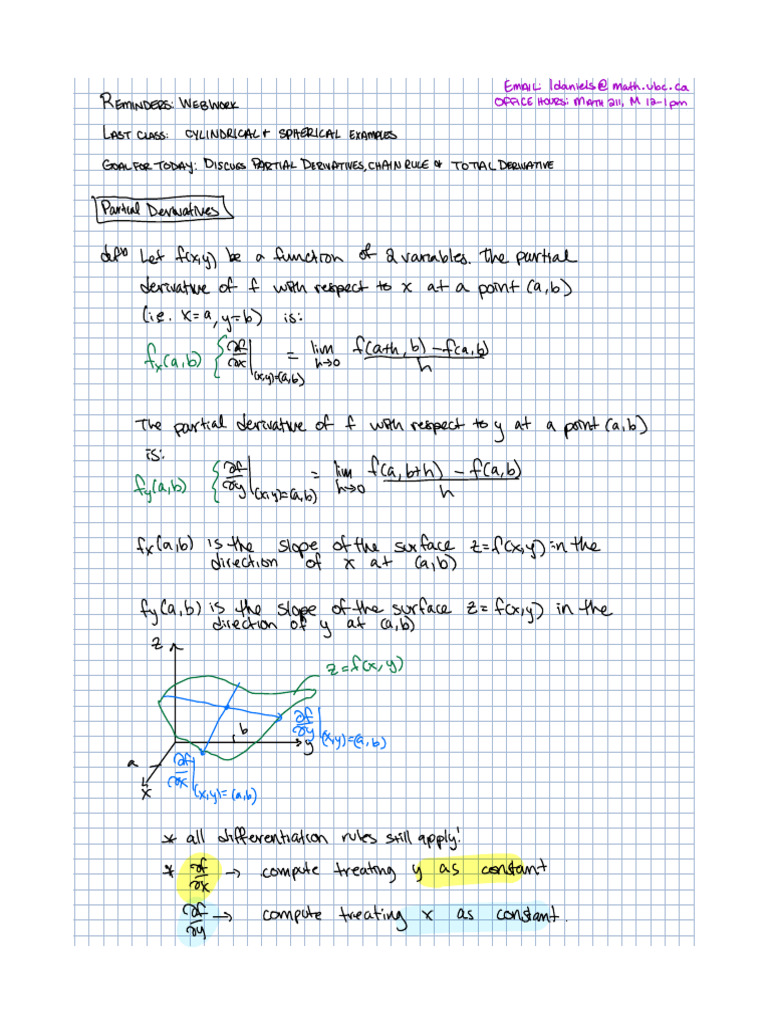 EMAIL: ldaniels@math.ubc.ca
REMINDERS: WEBWORK
OFFICE HOURS: MATH 211, M 12-1pm
LAST CLASS: CYLINDRICAL + SPHERICAL EXAMPLES
GOAL FOR TODAY: DISCUSS PARTIAL DERIVATIVES, CHAIN RULE & TOTAL DERIVATIVE
Partial Derivatives
defn Let f(x,y) be a function of 2 variables. The partial
derivative of f with respect to x at a point (a,b)
(i.e. x=a, y=b) is:
fx(a,b) { ∂f/∂x |(x,y)=(a,b) = lim h→0 f(a+h, b) - f(a,b) / h
The partial derivative of f with respect to y at a point (a,b)
is:
fy(a,b) { ∂f/∂y |(x,y)=(a,b) = lim h→0 f(a, b+h) - f(a,b) / h
fx(a,b) is the slope of the surface z=f(x,y) in the
direction of x at (a,b)
fy(a,b) is the slope of the surface z=f(x,y) in the
direction of y at (a,b)
z
z=f(x,y)
∂f/∂y |(x,y)=(a,b)
b
y
a
∂f/∂x |(x,y)=(a,b)
x
* all differentiation rules still apply!
* ∂f/∂x → compute treating y as constant
∂f/∂y → compute treating x as constant.